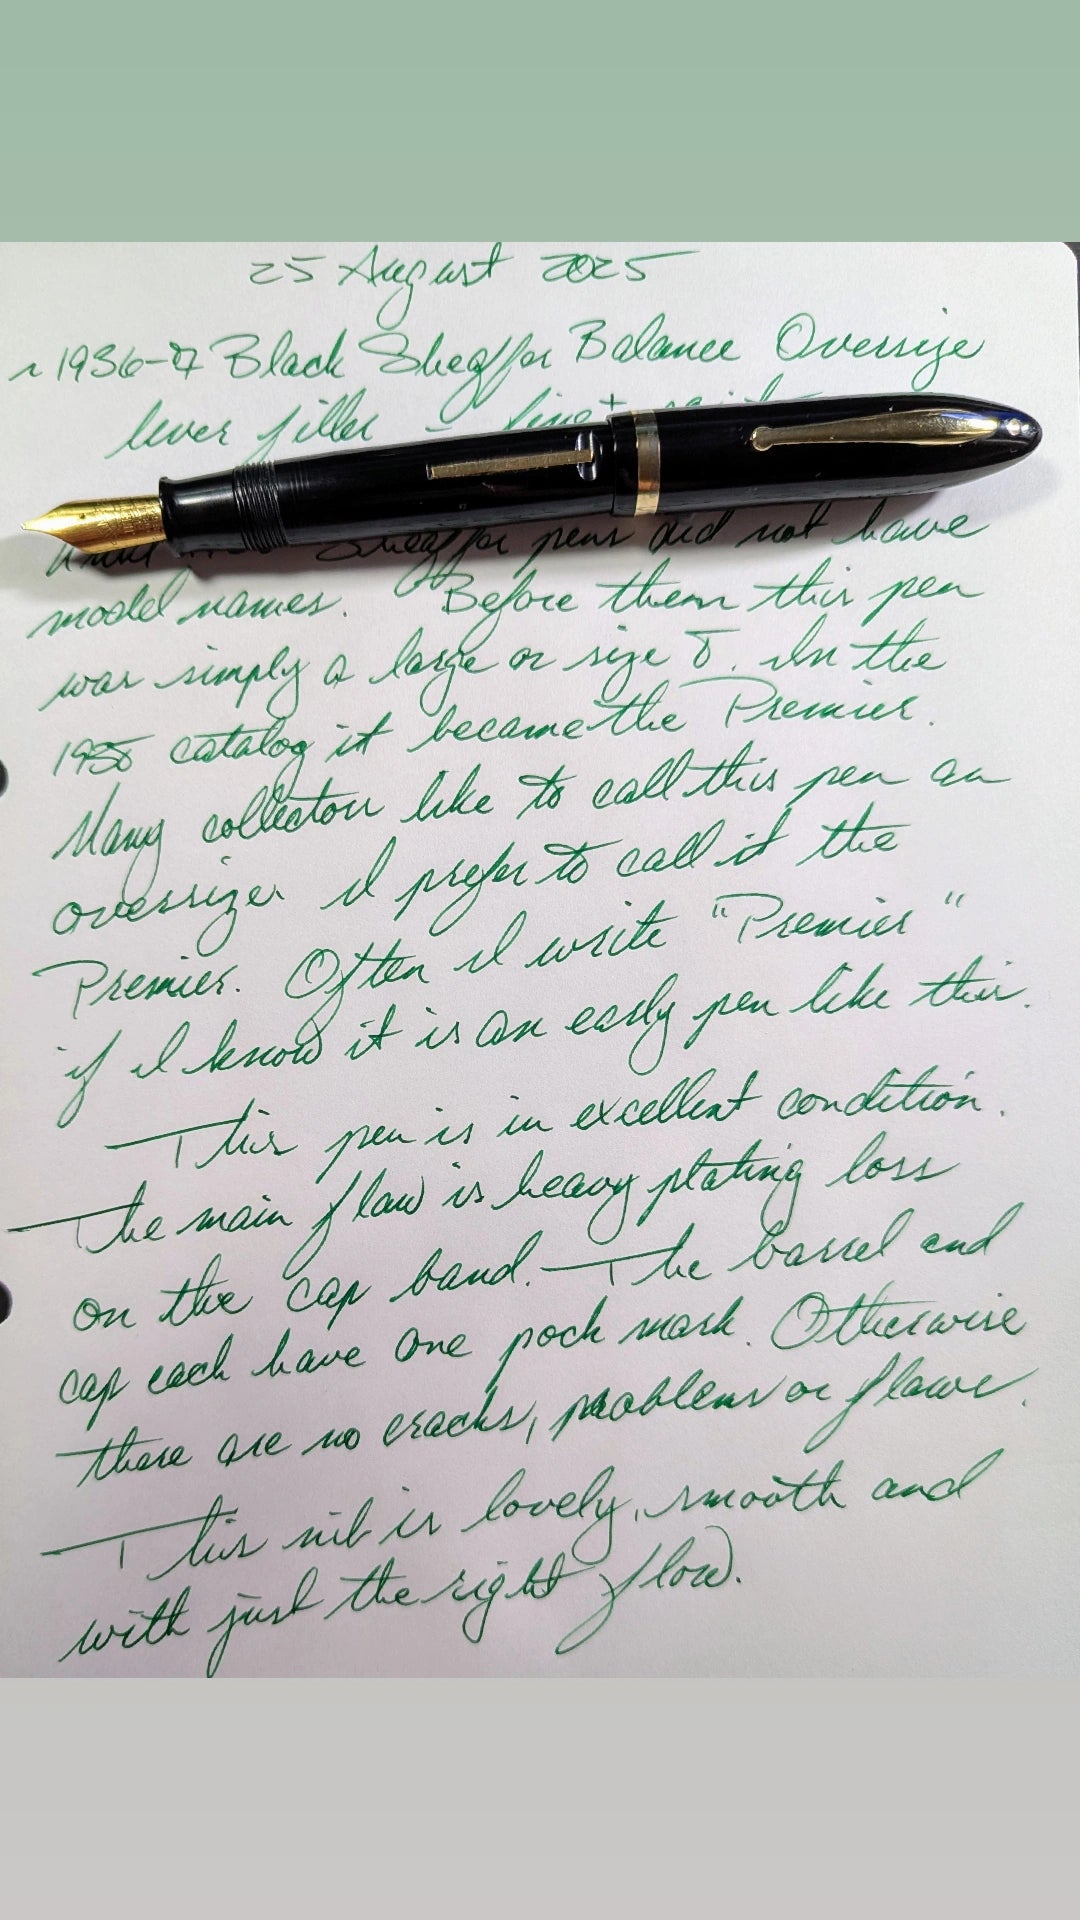 25 August 2025
~1936-7 Black Sheaffer Balance Oversize
lever filler - fine+ point
Sheaffer pens did not have
model names. Before them this pen
was simply a large or size 8. In the
catalog it became the Premier.
Many collectors like to call this pen an
oversize. I prefer to call it the
Premier. Often I write "Premier"
if I know it is an early pen like this.
This pen is in excellent condition.
The main flaw is heavy plating loss
on the cap band. The barrel and
cap each have one pock mark. Otherwise
there are no cracks, problems or flaws.
This nib is lovely, smooth and
with just the right flow.